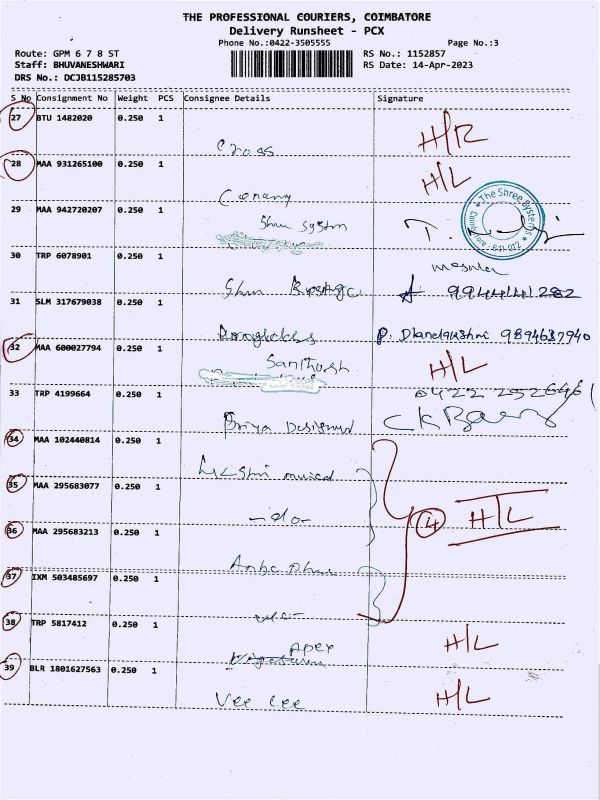 THE PROFESSIONAL COURIERS, COIMBATORE
Delivery Runsheet - PCX
Phone No.:0422-3505555 Page No.:3
Route: GPM 6 7 8 ST RS No.: 1152857
Staff: BHUVANESHWARI RS Date: 14-Apr-2023
DRS No.: DCJB115285703
S No Consignment No Weight PCS Consignee Details Signature
27 BTU 1482020 0.250 1
Cross H/R
28 MAA 931265100 0.250 1
H/L
29 MAA 942720207 0.250 1
The Shree Systems
30 TRP 6078901 0.250 1
31 SLM 317679038 0.250 1
9894637940
32 MAA 600027794 0.250 1
Santhosh H/L
33 TRP 4199664 0.250 1
Priya
34 MAA 102440814 0.250 1
35 MAA 295683077 0.250 1
-do- 4 H/L
36 MAA 295683213 0.250 1
37 IXM 503485697 0.250 1
38 TRP 5817412 0.250 1
Apex H/L
39 BLR 1801627563 0.250 1
Vee Lee H/L